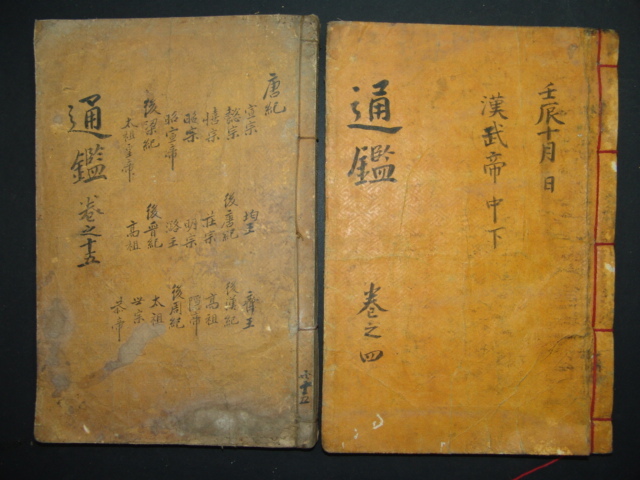 壬辰十月 日
漢武帝 中下
通鑑 卷之四
唐紀
宣宗
懿宗
僖宗
昭宗
昭宣帝
後梁紀
太祖皇帝
均王
後唐紀
莊宗
明宗
潞王
後晉紀
高祖
齊王
後漢紀
高祖
隱帝
後周紀
太祖
世宗
恭帝
通鑑 卷之十五